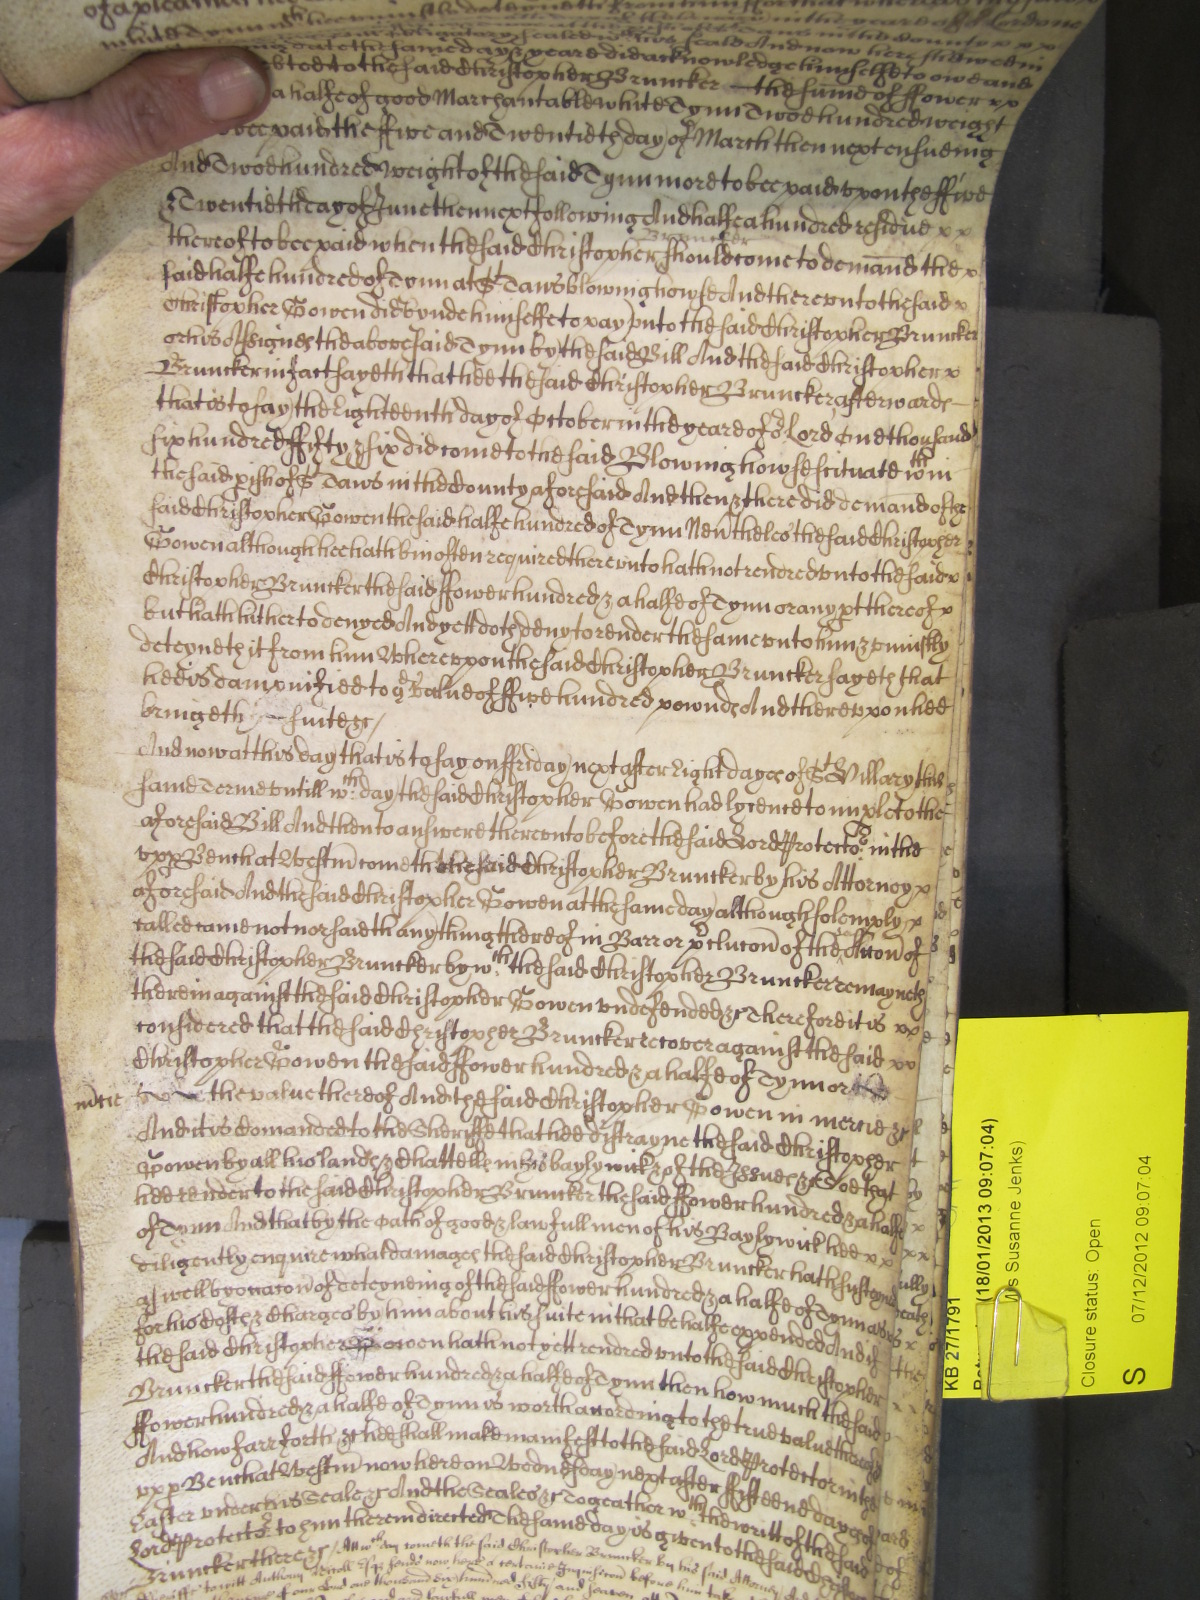 indebted to the said Christopher Bruncker the sume of ffower xx
a halfe of good Marchantable white Tynn Twoe hundred weight
bee paid the ffive and Twentieth day of March then next ensueing
And Twoe hundred Weight of the said Tynn more to bee paid upon the ffive
& Twentieth day of June then next following And halfe a hundred residue xx
thereof to bee paid when the said Christopher Bruncker should come to demand the x
said halfe hundred of Tynn at St Taws blowing howse And thereunto the said x
Christopher Gowen did bynde himselfe to pay unto the said Christopher Bruncker
or his Assignes the abovesaid Tynn by the said Bill And the said Christopher x
Bruncker in fact sayeth that hee the said Christopher Bruncker afterwards
that is to say the Eighteenth day of October in the yeare of or Lord One thousand
six hundred ffifty & six did come to the said Blowing howse scituate wthin
the said pish of St Taws in the County aforesaid And then & there did demand of the
said Christopher Gowen the said halfe hundred of Tynn Nevtheles the said Christopher
Gowen although hee hath bin often required thereunto hath not rendred unto the said x
Christopher Bruncker the said ffower hundred & a halfe of Tynn or any pt thereof x
but hath hitherto denyed And yett doth deny to render the same unto him & uniustly
deteyneth it from him Whereupon the said Christopher Bruncker sayeth that
hee is dampnified to ye value of ffive hundred pownds And thereupon hee
bringeth suite &c
And now at this day that is to say on ffriday next after Eight dayes of St Hillary this
same Terme untill wch day the said Christopher Gowen had lycence to imple to the
aforesaid Bill And then to answere thereunto before the said Lord Protector in the
upp Bench at Westm cometh the said Christopher Bruncker by his Attorney x
aforesaid And the said Christopher Gowen at the same day although solemply x
called came not nor saith any thing thereof in Barr or pclucon of the Accon of
the said Christopher Bruncker by wch the said Christopher Bruncker remayneth
therein against the said Christopher Gowen undefended &c Therefore it is xx
considered that the said Christopher Bruncker recover against the said xx
Christopher Gowen the said ffower hundred & a halfe of Tynn or
mcie the value thereof And the said Christopher Gowen in mercie &c
And it is comanded to the Sheriffe that hee distrayne the said Christopher
Gowen by all his lands & Chattells in his baylywick & of the Issues &c Soe that
hee render to the said Christopher Bruncker the said ffower hundred & a halfe
of Tynn And that by the oath of good & lawfull men of his Baylywick hee xx
diligently enquire what damages the said Christopher Bruncker hath susteyned
as well by occacon of deteyneing of the said ffower hundred & a halfe of Tynn as
for his Costs & Charges by him about his suite in that behalfe expended And if
the said Christopher Gowen hath not yett rendred unto the said Christopher
Bruncker the said ffower hundred & a halfe of Tynn then how much the said
ffower hundred & a halfe of Tynn is worth according to the true value thereof
And how farr forth &c he shall make manifest to the said Lord Protector in the
upp Bench at Westm now here on Wednesday next after ffifteene dayes of
Easter under his Seale &c And the Seales &c Togeather wth the writt of the said
Lord Protector to him therein directed The same day is given to the said Christopher
Bruncker there &c Att wch day cometh the said Christopher Bruncker by his said Attorney
KB 27/1791
(18/01/2013 09:07:04)
Susanne Jenks)
Closure status: Open
S 07/12/2012 09:07:04